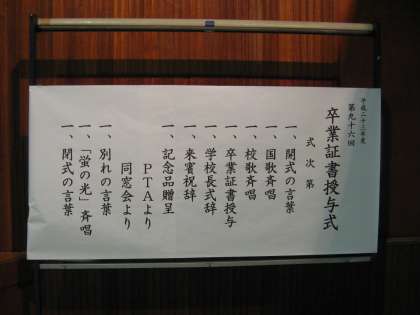 平成二十三年度
第九十六回
卒業証書授与式
式次第
一、開式の言葉
一、国歌斉唱
一、校歌斉唱
一、卒業証書授与
一、学校長式辞
一、来賓祝辞
一、記念品贈呈
PTAより
同窓会より
一、別れの言葉
一、「蛍の光」斉唱
一、閉式の言葉